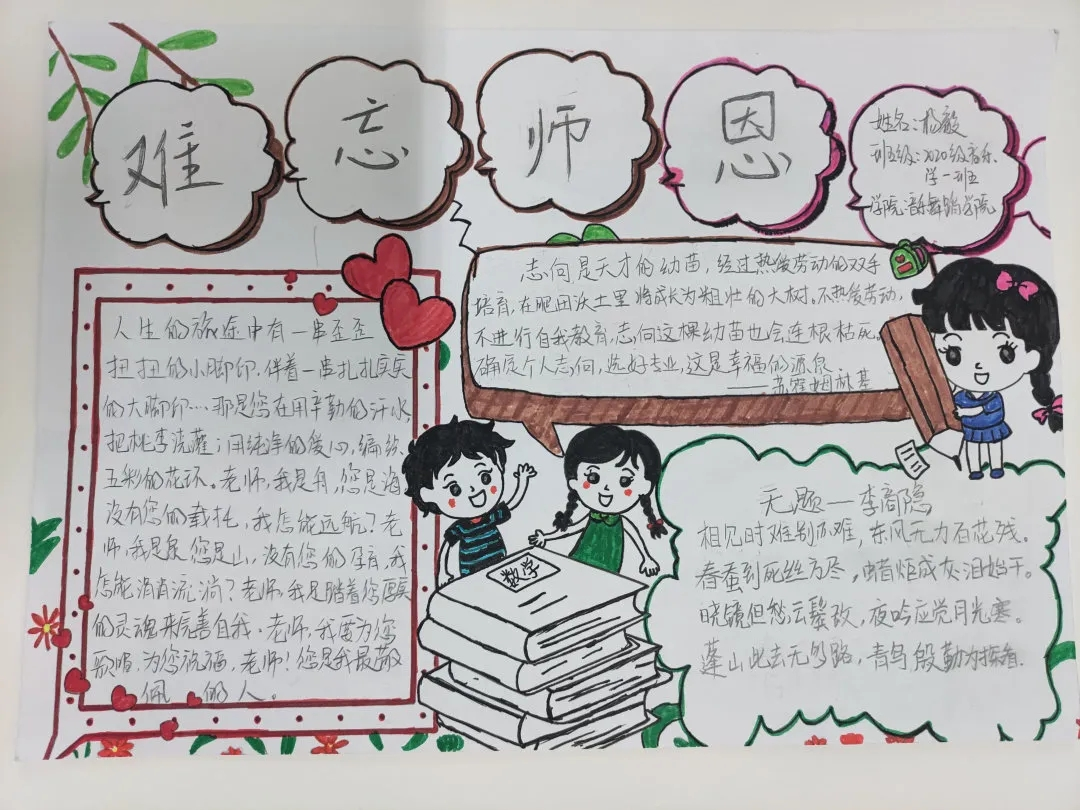 难忘师恩
姓名:杨毅
班级:2020级音乐
学一班
学院:音乐舞蹈学院
志向是天才的幼苗,经过热爱劳动的双手
培育,在肥田沃土里将成长为粗壮的大树。不热爱劳动,
不进行自我教育,志向这棵幼苗也会连根枯死。
确定个人志向,选好专业,这是幸福的源泉。
——苏霍姆林基
人生的旅途中有一串歪歪
扭扭的小脚印.伴着一串扎扎实实
的大脚印…那是您在用辛勤的汗水,
把桃李浇灌;用纯净的爱心,编织
五彩的花环。老师,我是舟,您是海
没有您的载托,我怎能远航?老
师,我是泉,您是山,没有您的孕育,我
怎能涓涓流淌?老师,我是踏着您厚实
的灵魂来完善自我.老师,我要为您
歌唱.为您祝福,老师!您是我最敬
佩的人。
数学
无题—李商隐
相见时难别亦难,东风无力百花残。
春蚕到死丝方尽,蜡炬成灰泪始干。
晓镜但愁云鬓改,夜吟应觉月光寒。
蓬山此去无多路,青鸟殷勤为探看.